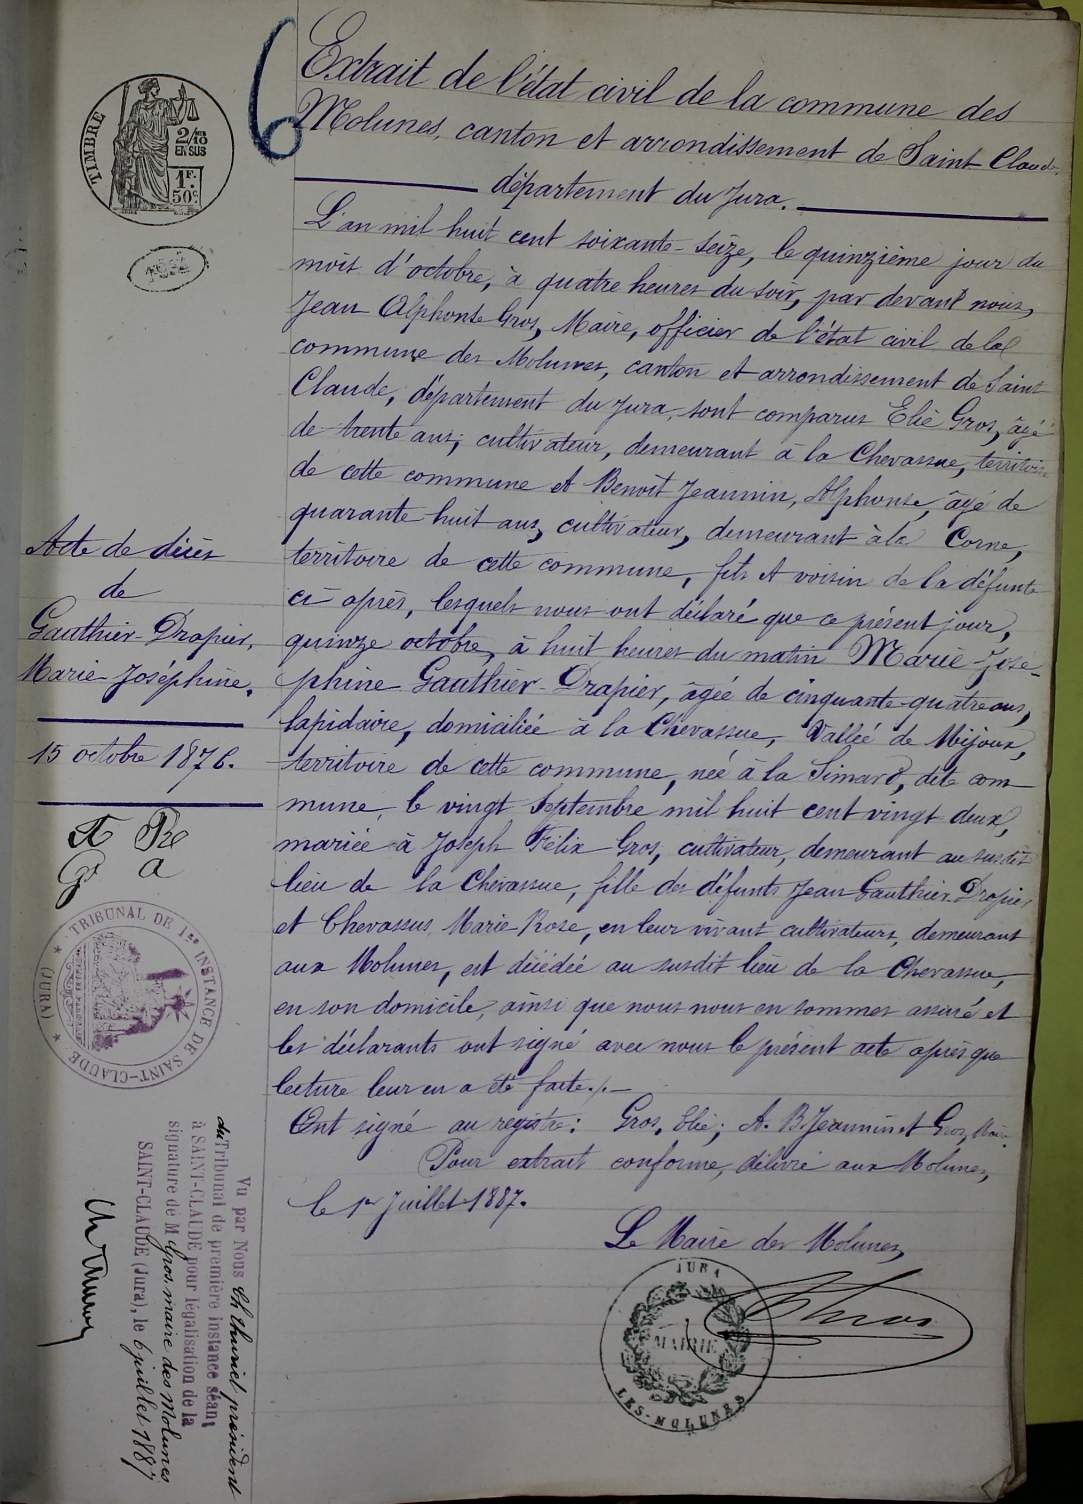 6
Extrait de l'état civil de la commune des
Molunes, canton et arrondissement de Saint Claude
département du Jura.
TIMBRE
2/10
EN SUS
1F.
50c.
L'an mil huit cent soixante-seize, le quinzième jour du
mois d'octobre, à quatre heures du soir, par devant nous,
Jean Alphonse Gros, Maire, officier de l'état civil de la
commune des Molunes, canton et arrondissement de Saint
Claude, département du Jura, sont comparus Elie Gros, âgé
de trente ans, cultivateur, demeurant à la Chevassue, territoire
de cette commune et Benoît Jeannin, Alphonse, âgé de
quarante huit ans, cultivateur, demeurant à la Corne,
territoire de cette commune, fils et voisin de la défunte
ci après, lesquels nous ont déclaré que ce présent jour,
quinze octobre, à huit heures du matin Marie-José-
phine Gauthier-Drapier, âgée de cinquante-quatre ans,
lapidaire, domiciliée à la Chevassue, Vallée de Mijoux,
territoire de cette commune, née à la Simard, dite com-
mune, le vingt Septembre mil huit cent vingt deux,
mariée à Joseph Félix Gros, cultivateur, demeurant au susdit
lieu de la Chevassue, fille des défunts Jean Gauthier-Drapier
et Chevassus Marie-Rose, en leur vivant cultivateurs, demeurant
aux Molunes, est décédée au susdit lieu de la Chevassue,
en son domicile, ainsi que nous nous en sommes assuré et
les déclarants ont signé avec nous le présent acte après que
lecture leur en a été faite./.
Ont signé au registre: Gros, Elie; A. B. Jeannin et Gros, Maire.
Pour extrait conforme, délivré aux Molunes,
le 1er Juillet 1887.
Le Maire des Molunes,
JURA
MAIRIE
LES-MOLUNES
Acte de décès
de
Gauthier-Drapier,
Marie-Joséphine.
15 octobre 1876.
TRIBUNAL DE 1re INSTANCE DE SAINT-CLAUDE
(JURA)
Vu par Nous Ch thuriel président
du Tribunal de première instance séant
à SAINT-CLAUDE pour légalisation de la
signature de M Gros, maire des Molunes
SAINT-CLAUDE (Jura), le 6 juillet 1887